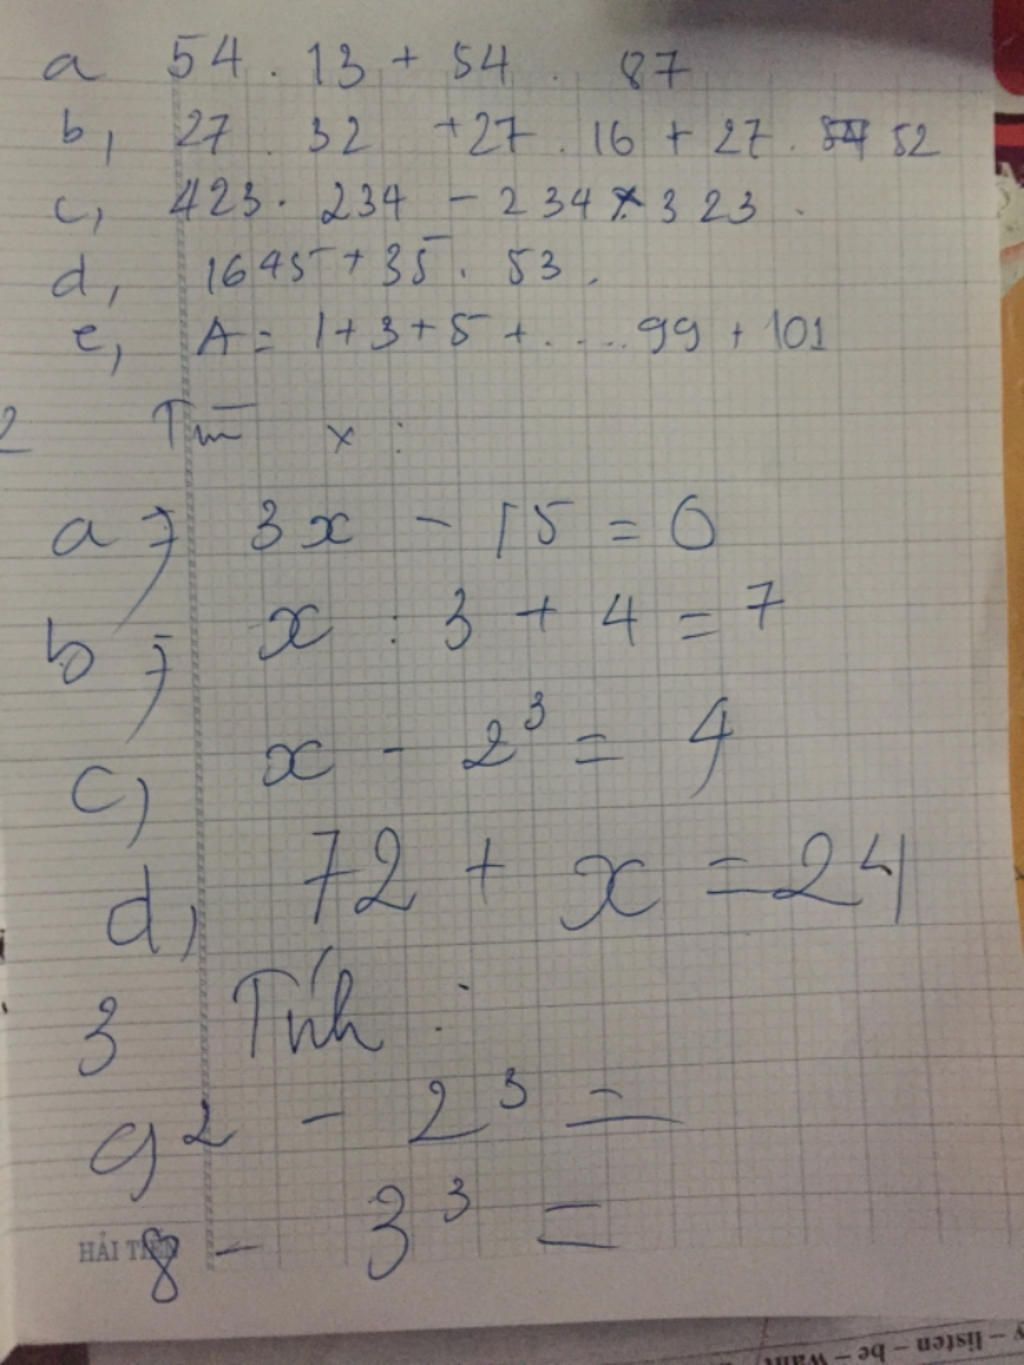 a 54 . 13 + 54 . 87
b, 27 . 32 + 27 . 16 + 27 . 52
c, 423 . 234 - 234 x 323 .
d, 1645 + 35 . 53 .
e, A = 1 + 3 + 5 + .... 99 + 101
2 Tìm x :
a, 3x - 15 = 0
b, x : 3 + 4 = 7
c) x - 2³ = 4
d, 72 + x = 24
3 Tính :
9² - 2³ =
8 - 3³ =
HẢI TIẾN
y – listen – be – want